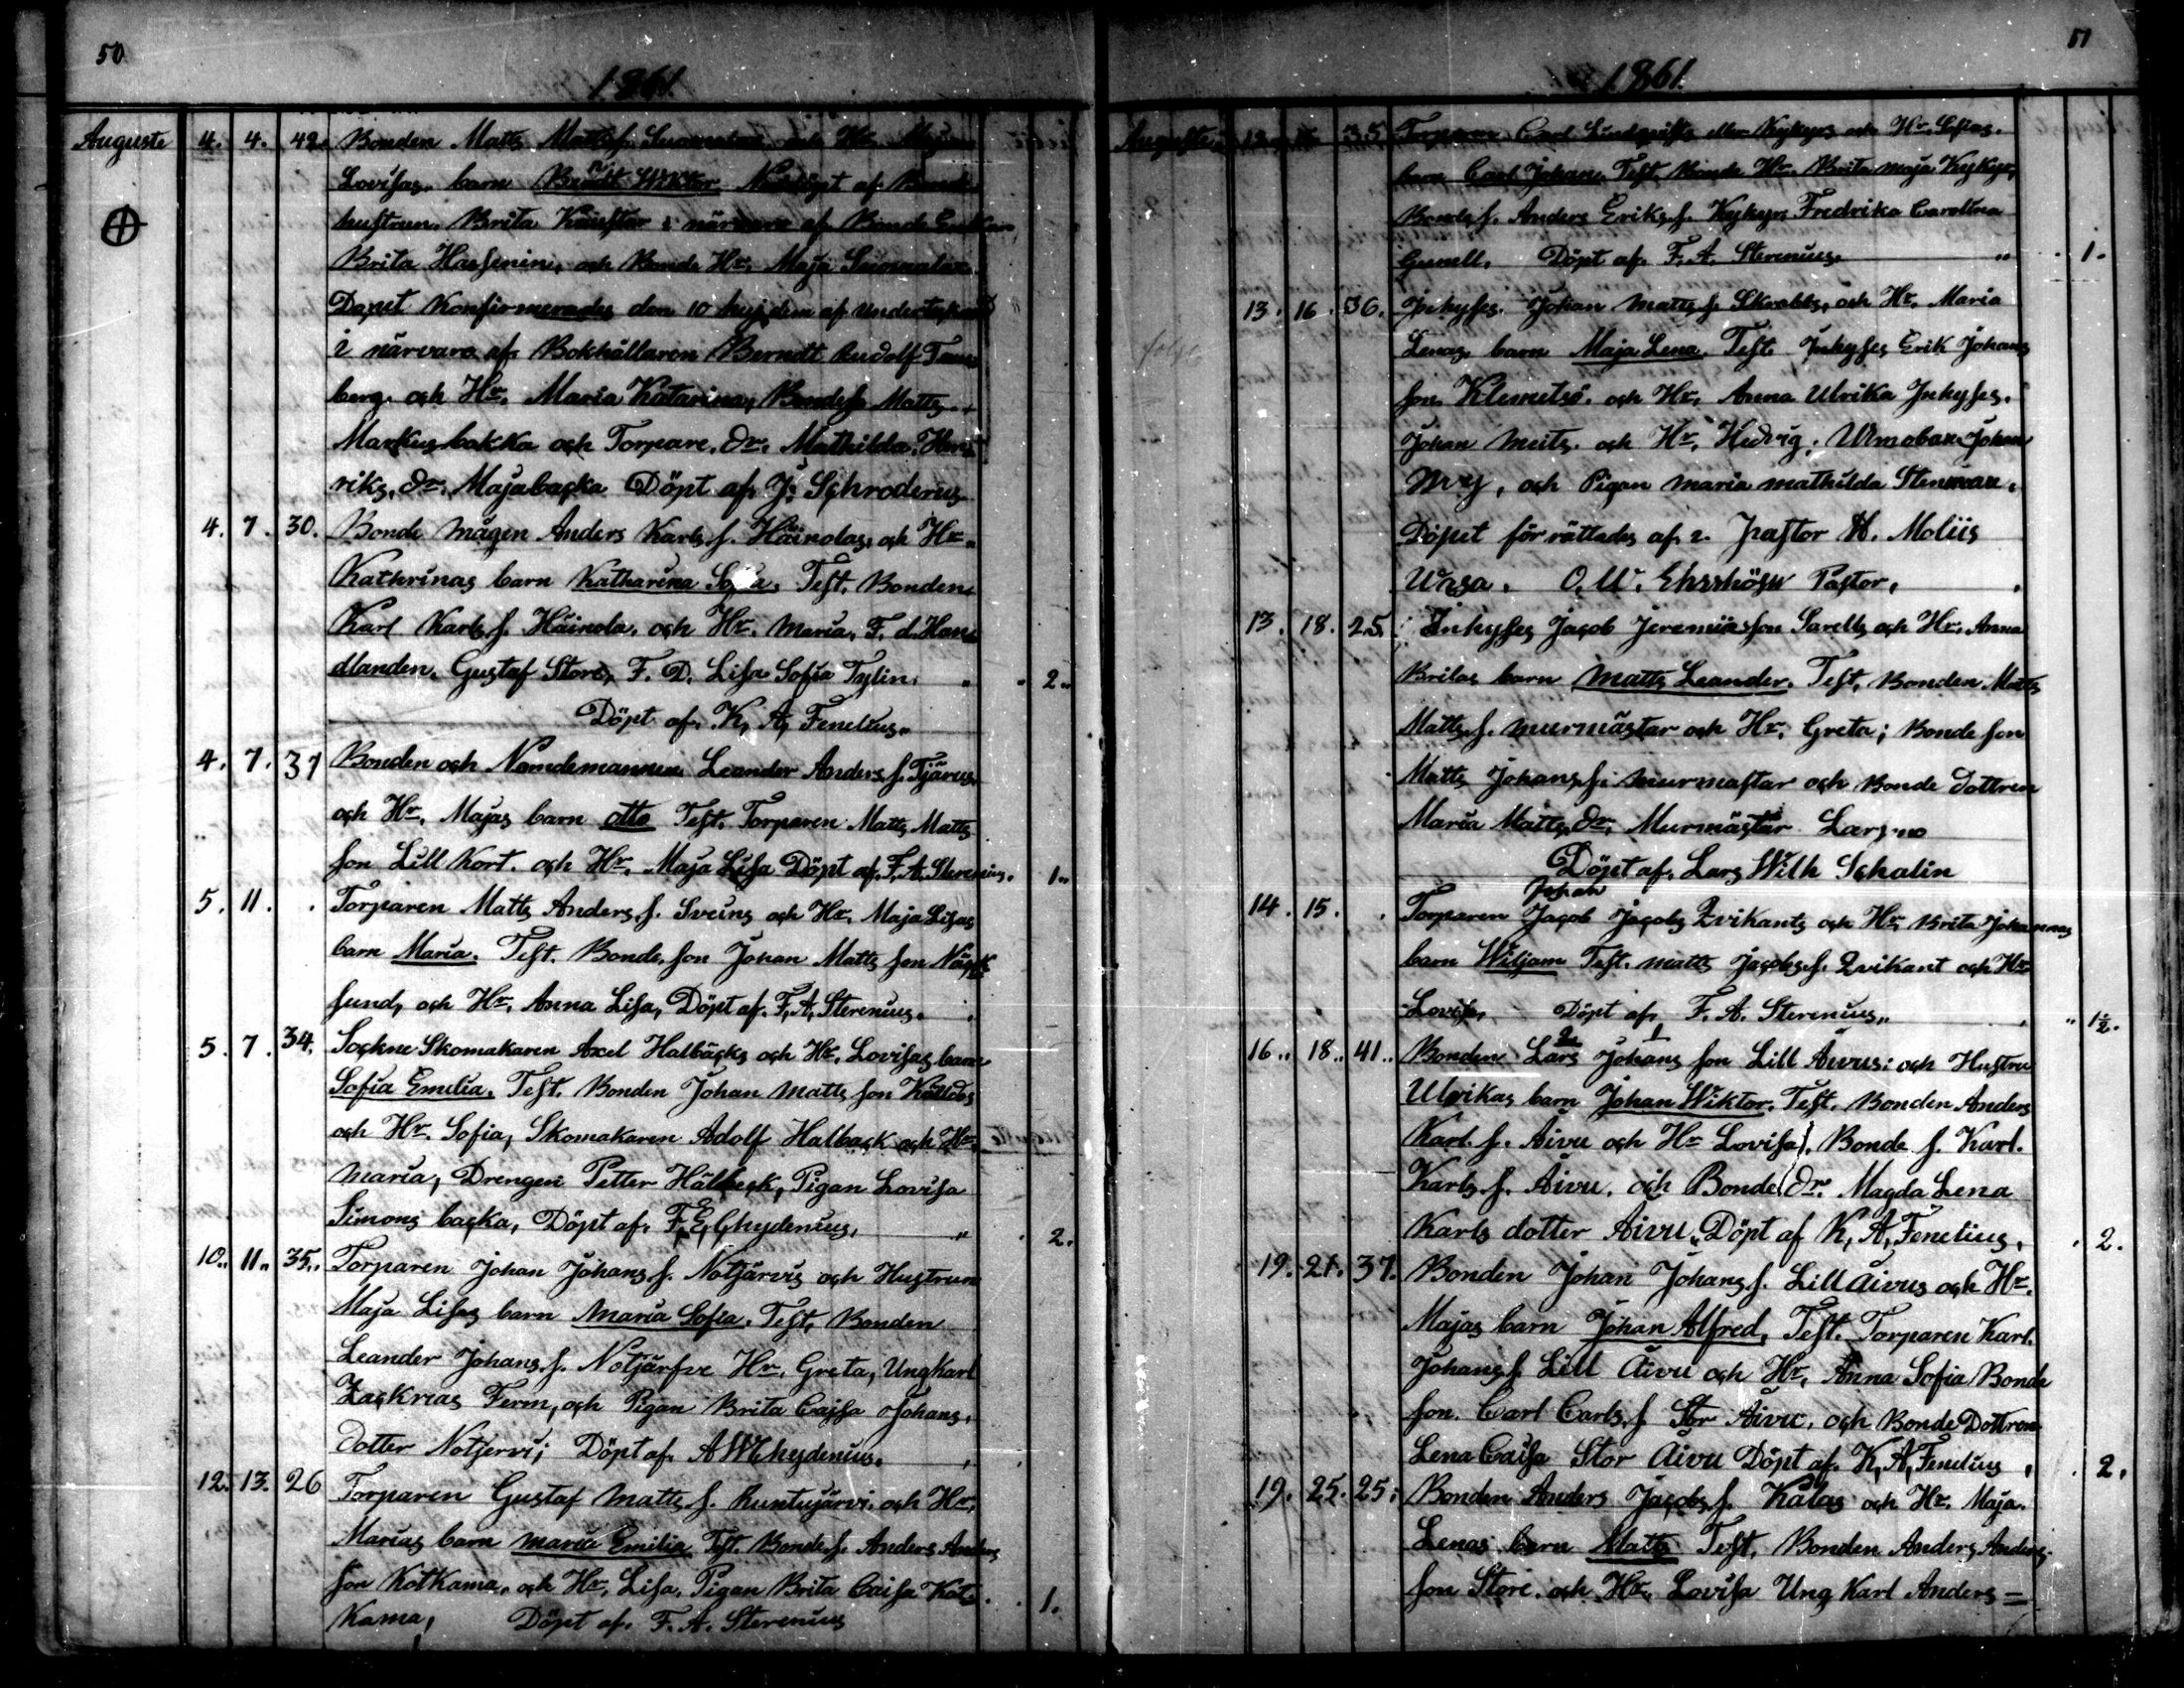 50
1861.
Auguste 4. 4. 42. Bonden Matts Matts f. och Hr. Majas
Lovisas barn Berndt Wiktor Nöddöpt af Bonde
hustrun Brita i närvaro af Bonde Enkan
Brita Hassinin, och Bonde Hr. Maja
Dopet Konfirmerades den 10 hujusdem af undertecknad
i närvaro af Bokhållaren Berndt Rudolf
berg och Hr. Maria Katarina, Bonde f. Matts
Markusbakka och Torpare dr. Mathilda Hen
riks dr. Majabacka Döpt af J. Schroderus
4. 7. 30. Bonde mågen Anders Karls f. Häinolas, och Hr.
Kathrinas barn Katharina Test. Bonden
Karl Karls f. Häinola, och Hr. Maria, F. d. Han
dlanden, Gustaf Store, F. D. Lisa Sofia Tylin. " . 2 "
Döpt af. K, A, Fenelius.
4. 7. 37 Bonden och Nämdemannen Leander Anders f. Tjärus
och Hr. Majas barn Otto Test. Torparen Matts Matts
son Lill Kort. och Hr. Maja Lisa Döpt af. F. A. Sterenius. 1 "
5. 11. . Torparen Matts Anders f. Sveins och Hr. Maja Lisas
barn Maria. Test. Bonde son Johan Matts son
sund, och Hr. Anna Lisa, Döpt af. F, A, Sterenius.
5. 7. 34. Sockne Skomakaren Axel Halbäcks och Hr. Lovisas barn
Sofia Emilia. Test. Bonden Johan Matts son
och Hr. Sofia, Skomakaren Adolf Halback och Hr.
Maria, Drengen Petter Hälbeck, Pigan Lovisa
Simons backa, Döpt af. F. E, Chydenius, " . 2.
10.. 11.. 35.. Torparen Johan Johans f. Notjärvis och Hustrun
Maja Lisas barn Maria Sofia. Test, Bonden
Leander Johans f. Notjärfve Hr. Greta, Ungkarl
Zackrias Ferm, och Pigan Brita Cajsa Johans,
dotter Notjervi; Döpt af. A W Chydenius.
12. 13. 26 Torparen Gustaf Matts f. Runtujärvi och Hr,
Marias barn Maria Emilia Test. Bonde f. Anders Anders
son Kotkama, och Hr, Lisa, Pigan Brita Caisa Kot. . 1.
Kama, Döpt af. F. A. Sterenius
51
1861.
Auguste 12 35. Torparen Carl Lindqvists eller Kykyris och Hr. Sofias.
barn Carl Johan. Test. Bonde Hr. Brita Maja Kykyri,
Bonde f. Anders Eriks f. Kykyri Fredrika Carolina
Gunell. Döpt af. F. A. Sterenius. " . 1.
13. 16. 36. Inhyses Johan Matts f. Skrabbs, och Hr. Maria
Lenas barn Maja Lena. Test. Inhyses Erik Johans
son Klemetsö. och Hr. Anna Ulrika Inhyses.
Johan och Hr. Hedvig, Johan
och Pigan Maria Mathilda Stenman.
Döpet för rättades af. v. Pastor H. Moliis
Wasa. O. W. Pastor,
13. 18. 25. Inhyses Jacob Jeremiasson Sarells och Hr. Anna
Britas barn Matts Leander. Test, Bonden Matts
Matts f. Murmästar och Hr, Greta; Bonde son
Matts Johans f. Murmästar och Bonde dottren
Maria Matts dr. Murmästar Larsmo
Döpt af. Lars Wilh Schalin
Johan
14. 15. . Torparen Jacob Jacobs Zvikants och Hr. Brita Johannas
barn Wiljam Test. Matts Jacobs f. Zvikant och Hr
Lovisa, Döpt af F. A. Sterenius,, " 1½.
2 1
16.. 18.. 41.. Bonden Lars Johans son Lill Äivus: och Hustru
Ulrikas barn Johan Wiktor. Test. Bonden Anders
Karl. f. Äivu och Hr Lovisa). Bonde f. Karl.
Karls f. Äivu, och Bonde dr. Magda Lena
Karls dotter Äivu,, Döpt af K, A, Fenelius, . 2.
19. 21. 37. Bonden Johan Johans f. Lill Äivus och Hr.
Majas barn Johan Alfred, Test. Torparen Karl.
Johans f. Lill Äivu och Hr, Anna Sofia Bonde
son. Carl Carls f. Stor Äivu, och Bonde Dottren
Lena Caisa Stor Äivu Döpt af. K, A, Fenelius . 2.
19. 25. 25. Bonden Anders Jacobs f. Kålas och Hr. Maja.
Lenas barn Matts Test, Bonden Anders Anders.
son Store. och Hr. Lovisa Ung Karl Anders =